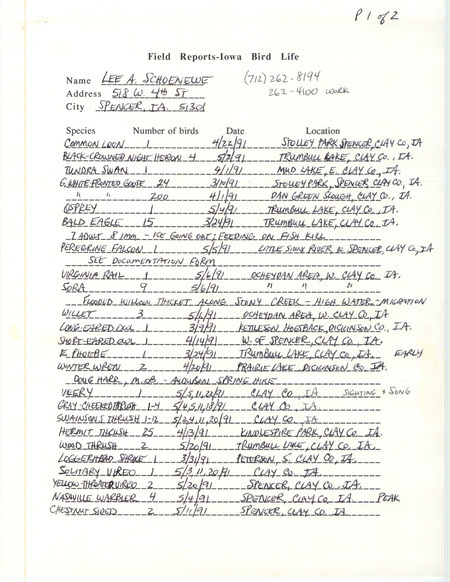 P 1 of 2
Field Reports-Iowa Bird Life
Name LEE A. SCHOENEWE (712) 262-8194
Address 518 W. 4th ST 262-4100 WORK
City SPENCER, IA. 51301
Species Number of birds Date Location
COMMON LOON 1 4/22/91 STOLLEY PARK SPENCER, CLAY CO, IA
BLACK-CROWNED NIGHT HERON 4 5/2/91 TRUMBULL LAKE, CLAY CO., IA.
TUNDRA SWAN 1 4/1/91 MUD LAKE, E. CLAY CO., IA.
G. WHITE-FRONTED GOOSE 24 3/10/91 STOLLEY PARK, SPENCER, CLAY CO., IA.
" " 200 4/1/91 DAN GREEN SLOUGH, CLAY CO, IA.
OSPREY 1 5/4/91 TRUMBULL LAKE, CLAY CO., IA.
BALD EAGLE 15 3/24/91 TRUMBULL LAKE, CLAY CO., IA.
7 ADULT 8 IMM. - ICE GOING OUT; FEEDING ON FISH KILL
PEREGRINE FALCON 1 5/5/91 LITTLE SIOUX RIVER SPENCER, CLAY CO, IA
SEE DOCUMENTATION FORM
VIRGINIA RAIL 1 5/6/91 OCHEYDAN AREA, W. CLAY CO IA.
SORA 9 5/6/91 " " "
FLOODED WILLOW THICKET ALONG STONY CREEK - HIGH WATER - MIGRATION
WILLET 3 5/6/91 OCHEYDAN AREA, W. CLAY CO IA
LONG-EARED OWL 1 3/9/91 KETTLESON HOGSBACK, DICKINSON CO., IA.
SHORT-EARED OWL 1 4/14/91 W. OF SPENCER, CLAY CO., IA.
E. PHOEBE 1 3/24/91 TRUMBULL LAKE, CLAY CO., IA. EARLY
WINTER WREN 2 4/20/91 PRAIRIE LAKE DICKINSON CO. IA.
DOUG HARR, M.OB. - AUDUBON SPRING HIKE
VEERY 1 5/5,11,22/91 CLAY CO IA SIGHTING & SONG
GRAY-CHEEKED THRUSH 1-4 5/4,5,11,18/91 CLAY CO. IA
SWAINSON'S THRUSH 1-12 5/2,4,11,20/91 CLAY CO. IA
HERMIT THRUSH 25 4/13/91 KINDLESPIRE PARK, CLAY CO. IA.
WOOD THRUSH 2 5/20/91 TRUMBULL LAKE, CLAY CO. IA.
LOGGERHEAD SHRIKE 1 3/31/91 PETERSON, S. CLAY CO, IA.
SOLITARY VIREO 1 5/3,11,20/91 CLAY CO. IA.
YELLOW-THROATED VIREO 2 5/20/91 SPENCER, CLAY CO., IA.
NASHVILLE WARBLER 4 5/4/91 SPENCER, CLAY CO IA PEAK
CHESTNUT SIDED 2 5/11/91 SPENCER, CLAY CO. IA